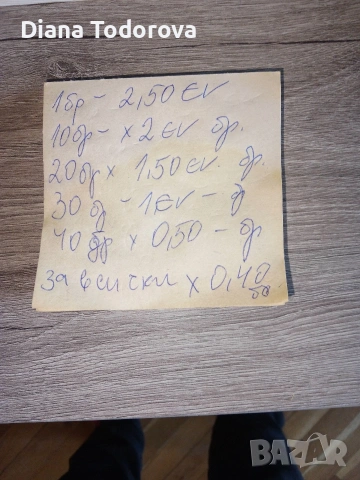 Diana Todorova
1бр - 2,50 EV
10бр - x 2 EV бр.
20бр x 1,50 EV. бр.
30 б - 1 EV - б
40 бр x 0,50 - бр.
За всички x 0,40
бр
BAZAR